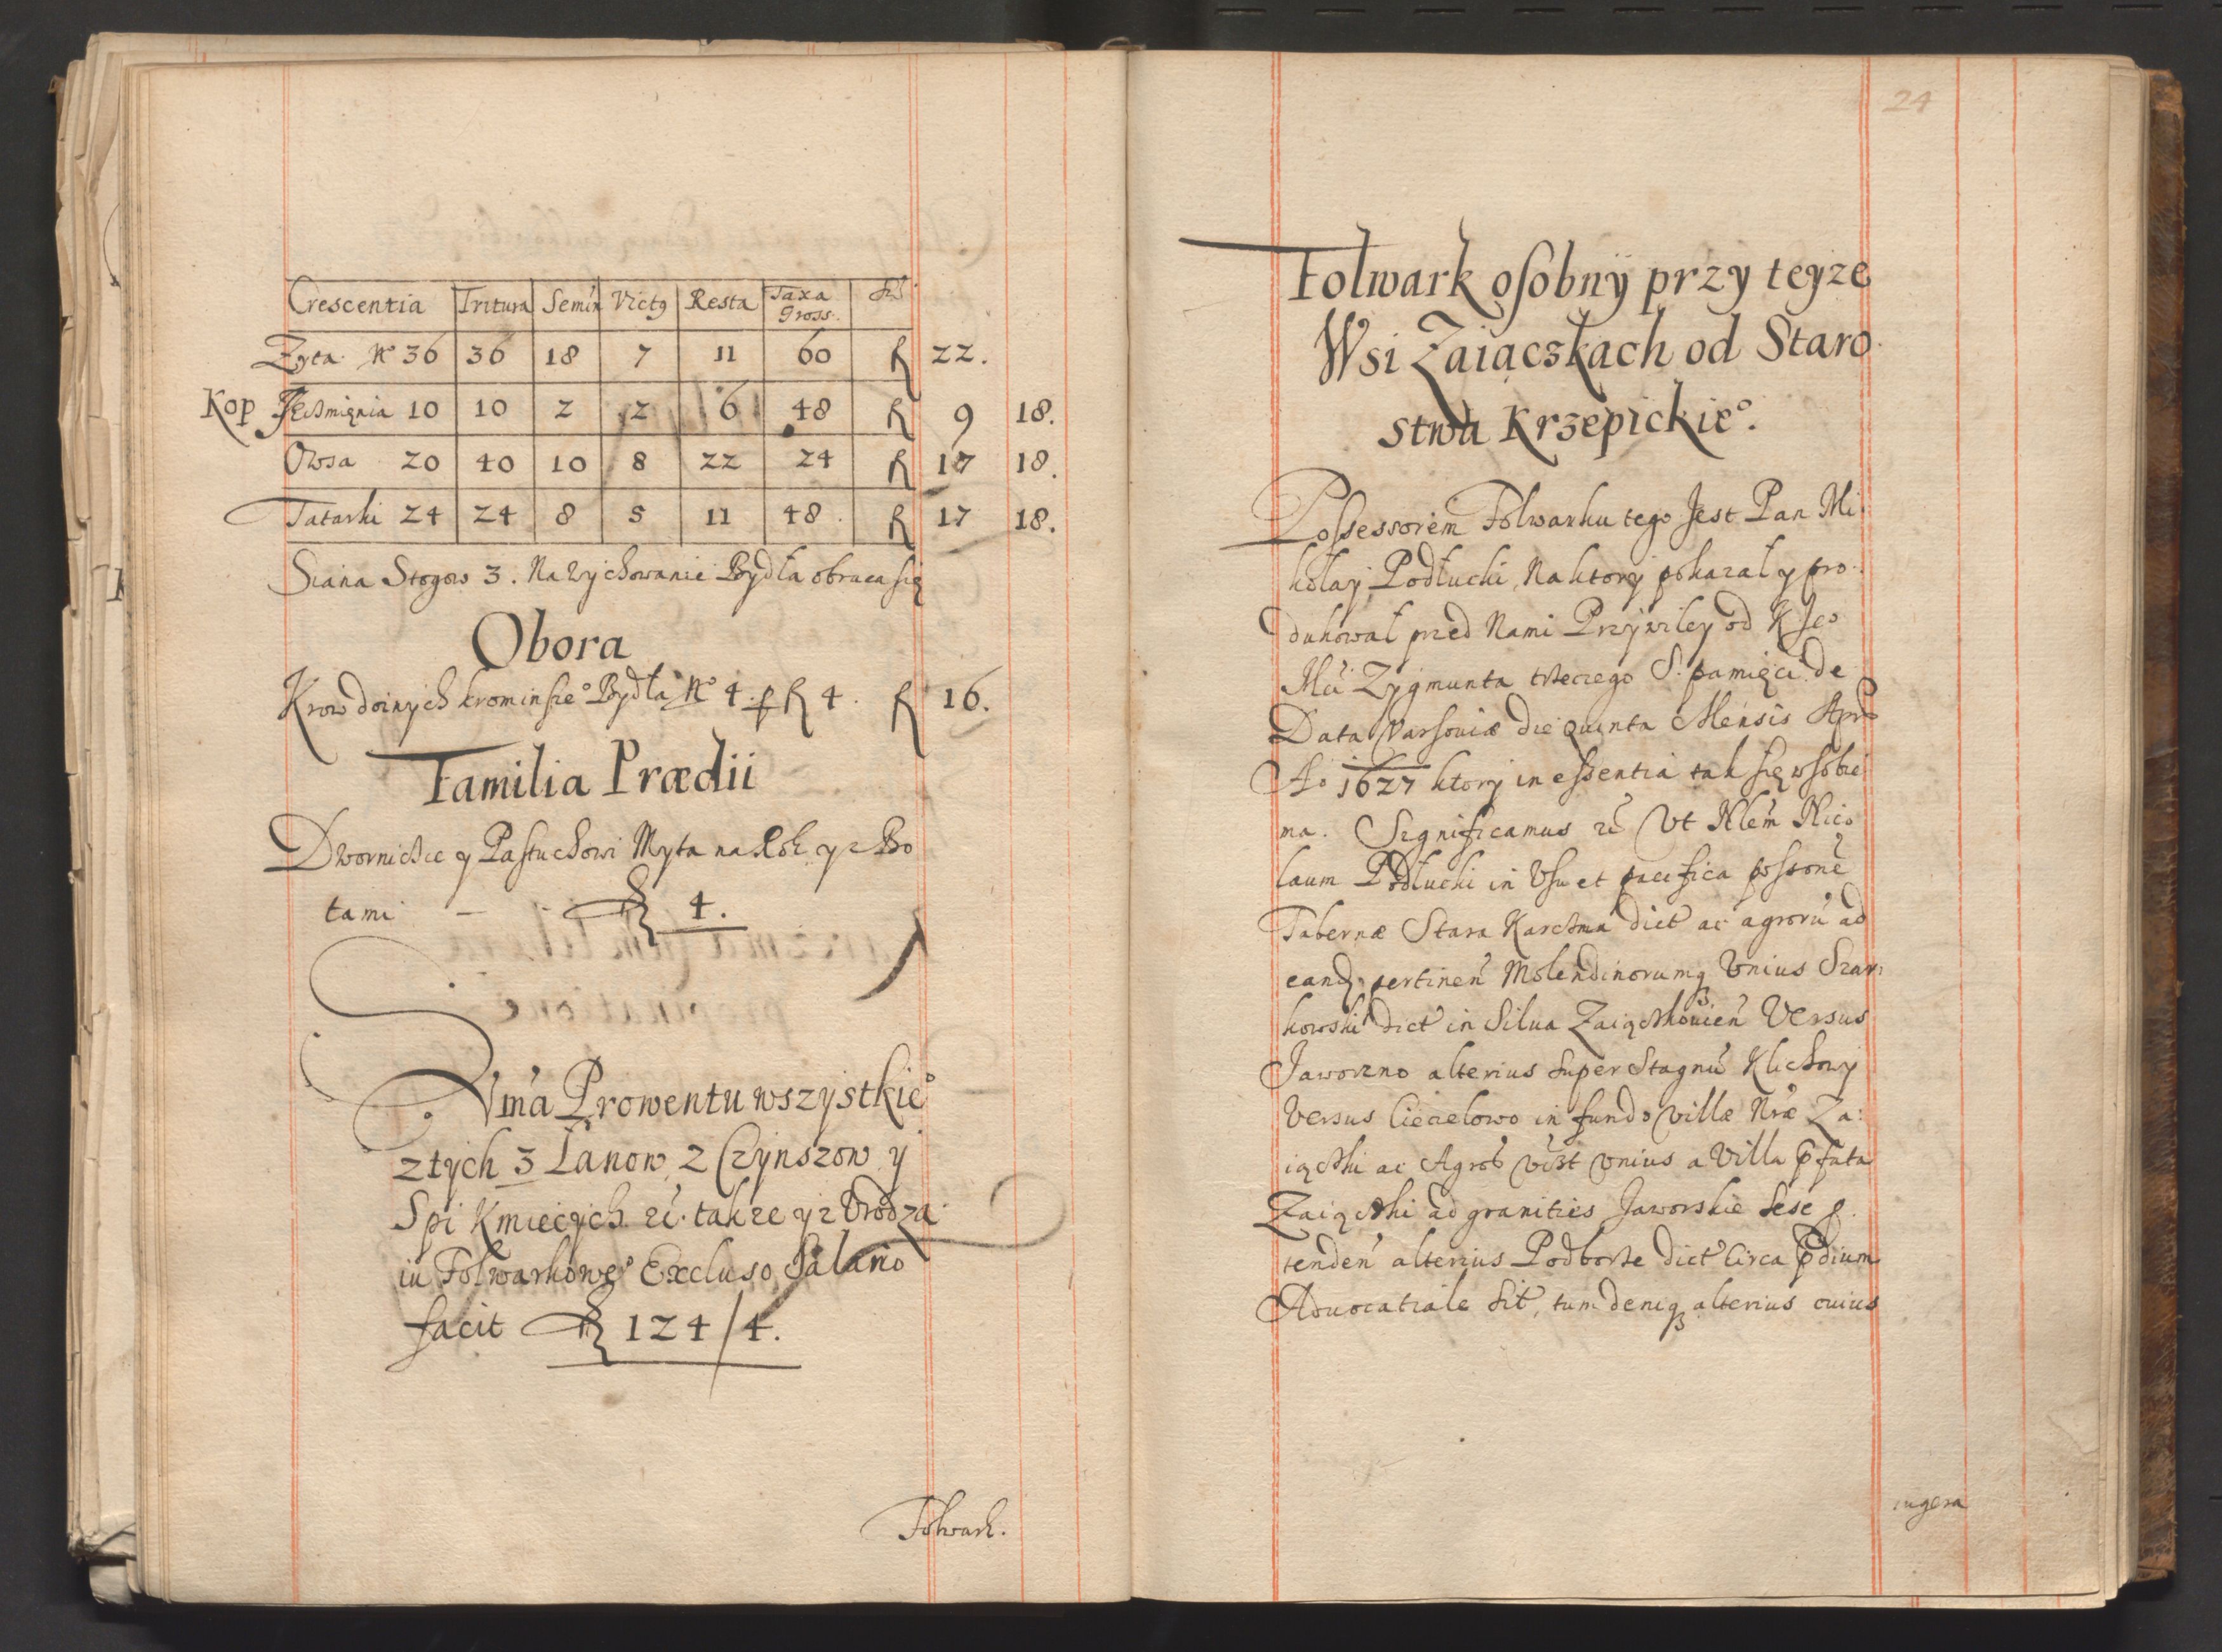 Crescentia Tritura Semin Victꝯ Resta Taxa Gross.
Zyta N° 36 36 18 7 11 60 fl 22.
Kop Jęczmięnia 10 10 2 2 6 48 fl 9 18.
Owsa 20 40 10 8 22 24 fl 17 18.
Tatarki 24 24 8 5 11 48. fl 17 18.
Siana Stogow 3. Na wychowanie Bydła obraca się
Obora
Krow doinych krom inszeº Bydła N° 4. p fl 4. fl 16.
Familia Prædii
Dwornicze y Pastuchowi Myta na Rok y z Bo
tami – - fl 4.
Suma Prowentu wszystkieº
z tych 3 Łanow, z Czynszow y
Spi Kmiecych. etc. takze y z Vrodza
iu Folwarkoweº Excluso Salario
facit fl 124/4.
Folwark.
24
Folwark osobny przy teyze
Wsi Zaiączkach od Staro
stwa Krzepickieº.
Possessorem Folwarku tego Jest Pan Mi
kołay Podłucki, Na ktory pokazał y pro-
dukował przed Nami Przywiley od K Jeo
Mci Zygmunta trzeciego S. pamięci de
Data Varsoviæ die quinta Mensis Apr
Aº 1627 ktory in essentia tak się w sobie
ma. Significamus etc Vt Nlem Nico
laum Podłucki in Vsu et pacifica possone
Tabernæ Stara Karczma dict ac agroru ad
eand pertinen Molendinorumq Vnius Szar
kowski dict in Silua Zaiączkouien Versus
Jaworzno alterius super Stagnu Klichowy
Versus Ciecielowo in fundo villæ Nræ Za:
iączki ac Agros vizt vnius a Villa pfata
Zaiączki ad granities Jaworskie sese p.
tenden alterius Podborze dict Circa pdium
Aduocatiale Sit, tum deniq alterius cuius
iugera